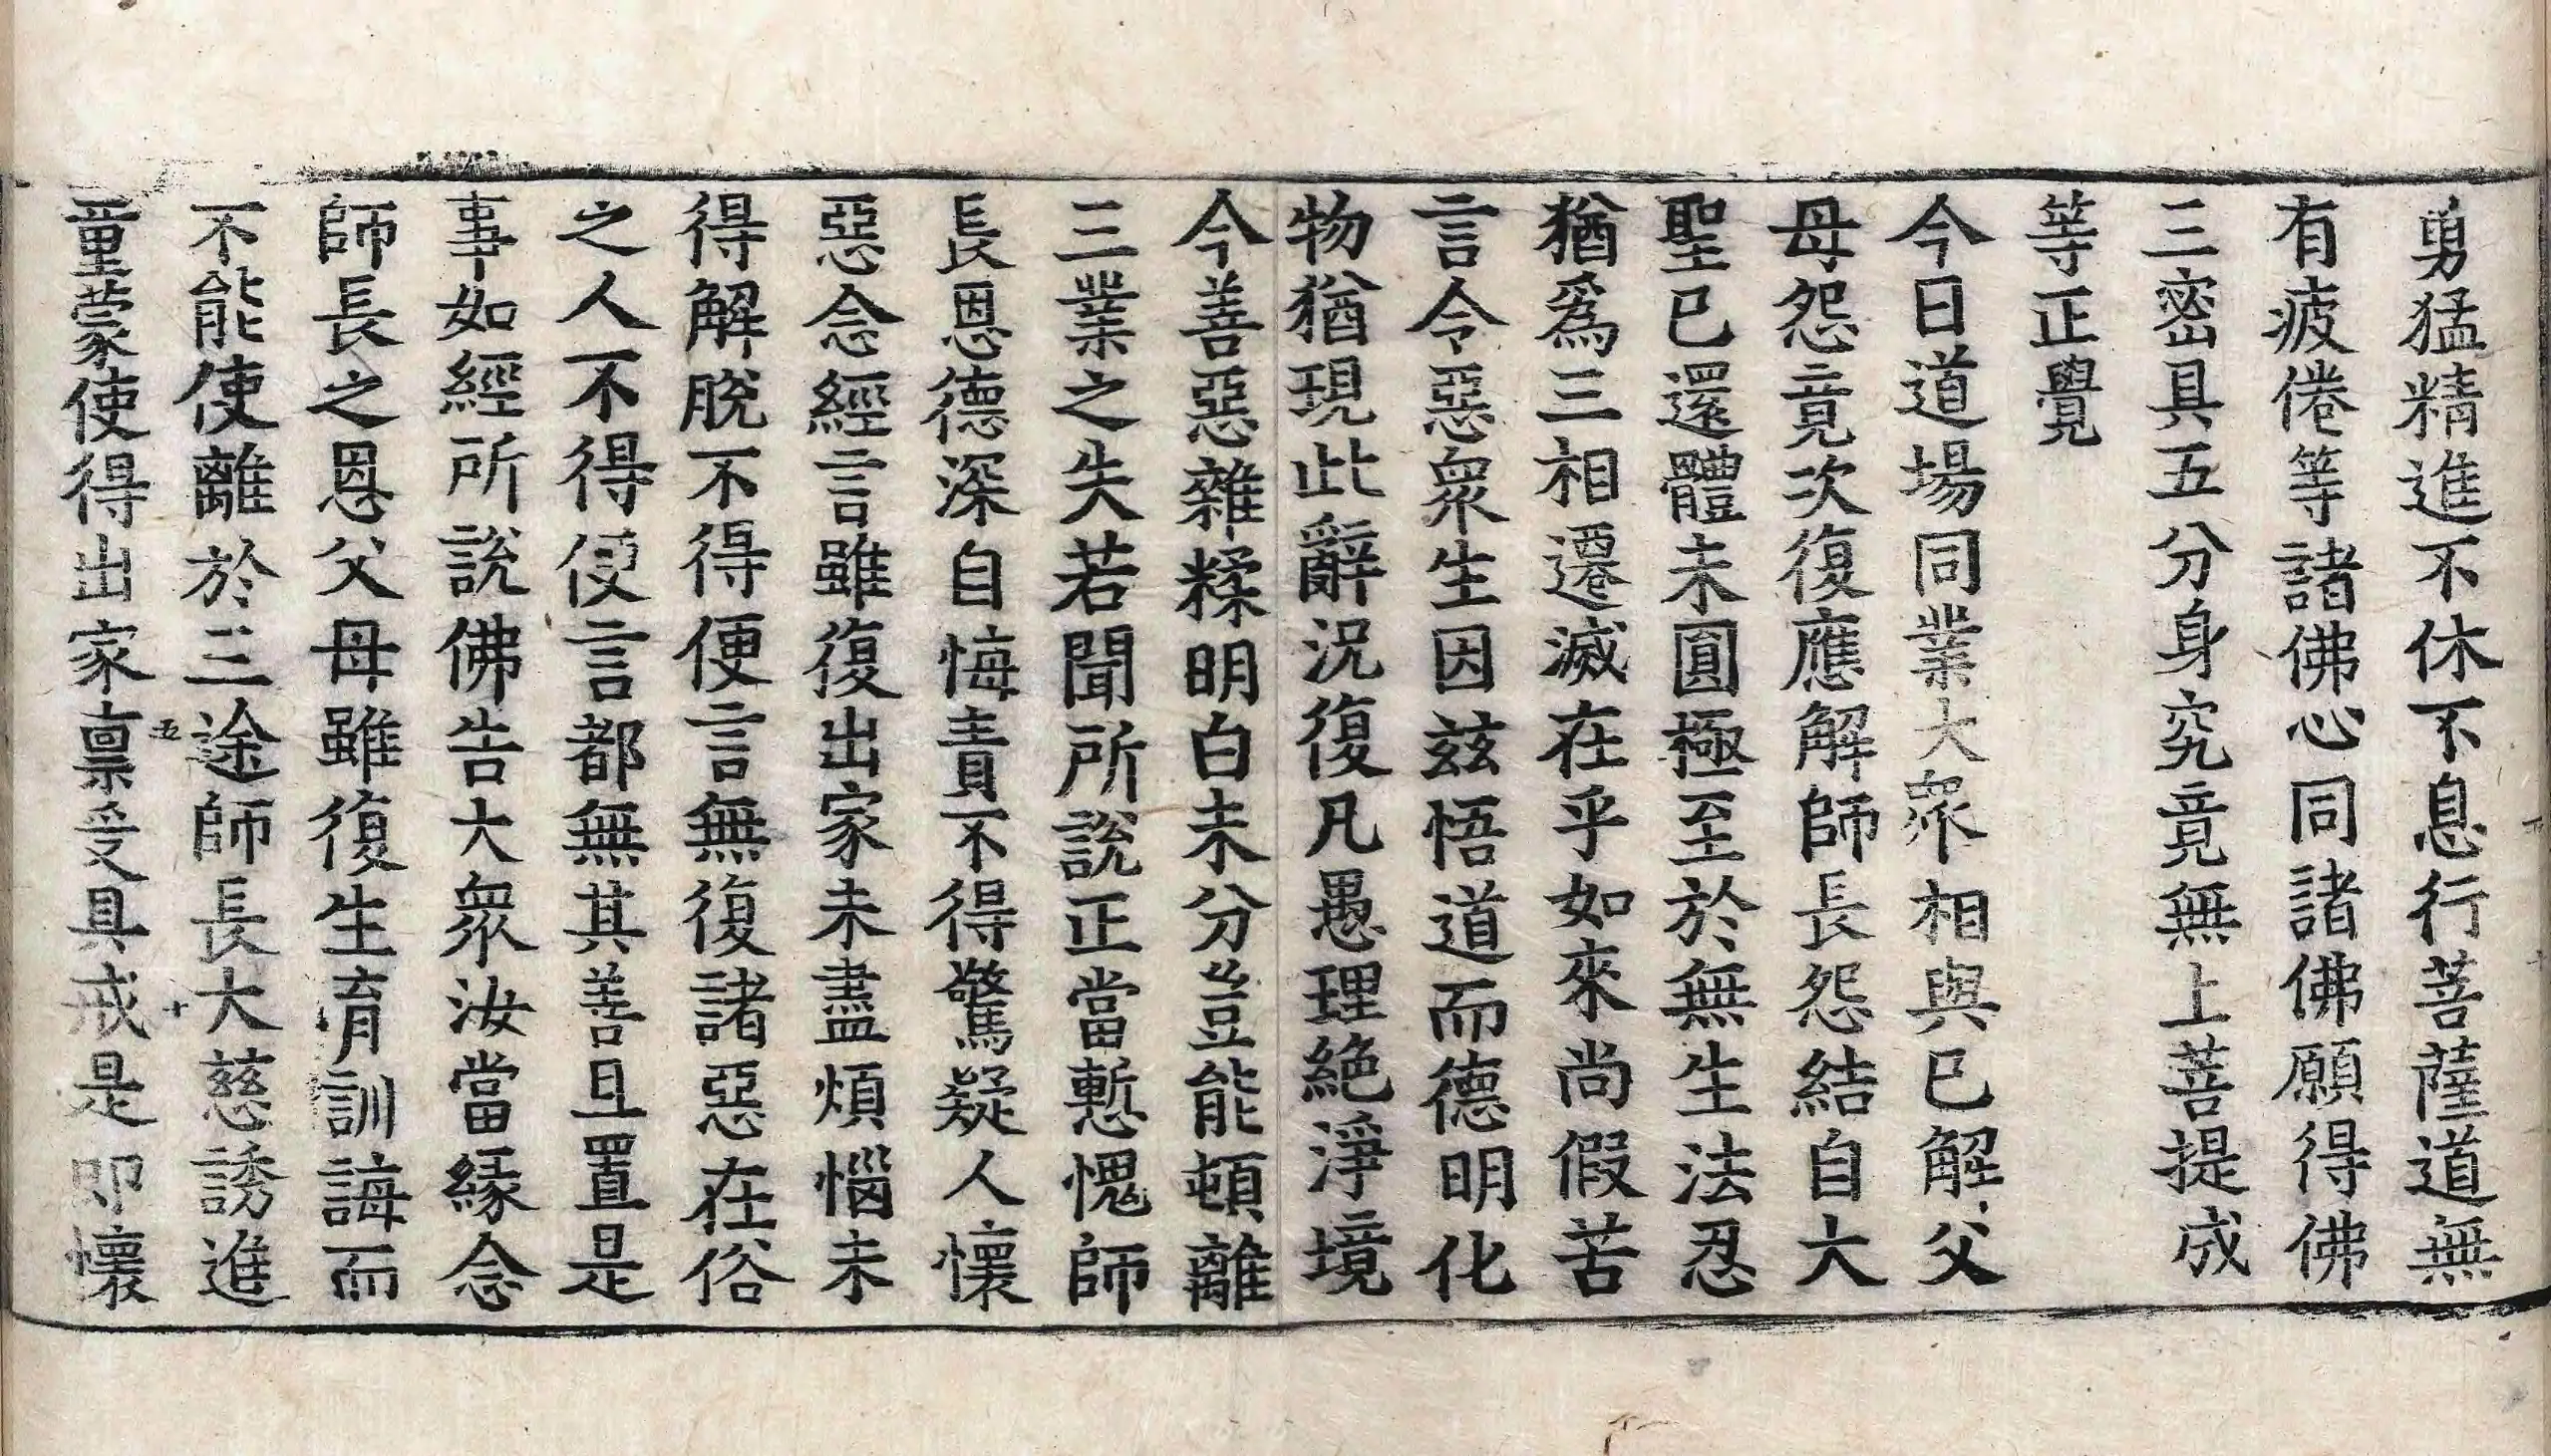 勇猛精進不休不息行菩薩道無
有疲倦等諸佛心同諸佛願得佛
三密具五分身究竟無上菩提成
等正覺
今日道場同業大衆相與已解父
母怨竟次復應解師長怨結自大
聖已還體未圓極至於無生法忍
猶爲三相遷滅在乎如來尚假苦
言令惡衆生因茲悟道而德明化
物猶現此辭況復凡愚理絶淨境
今善惡雜糅明白未分豈能頓離
三業之失若聞所說正當慙愧師
長恩德深自悔責不得驚疑人懷
惡念經言雖復出家未盡煩惱未
得解脫不得便言無復諸惡在俗
之人不得便言都無其善且置是
事如經所說佛告大衆汝當緣念
師長之恩父母雖復生育訓誨而
不能使離於三途師長大慈誘進
童蒙使得出家稟受具戒是即懷